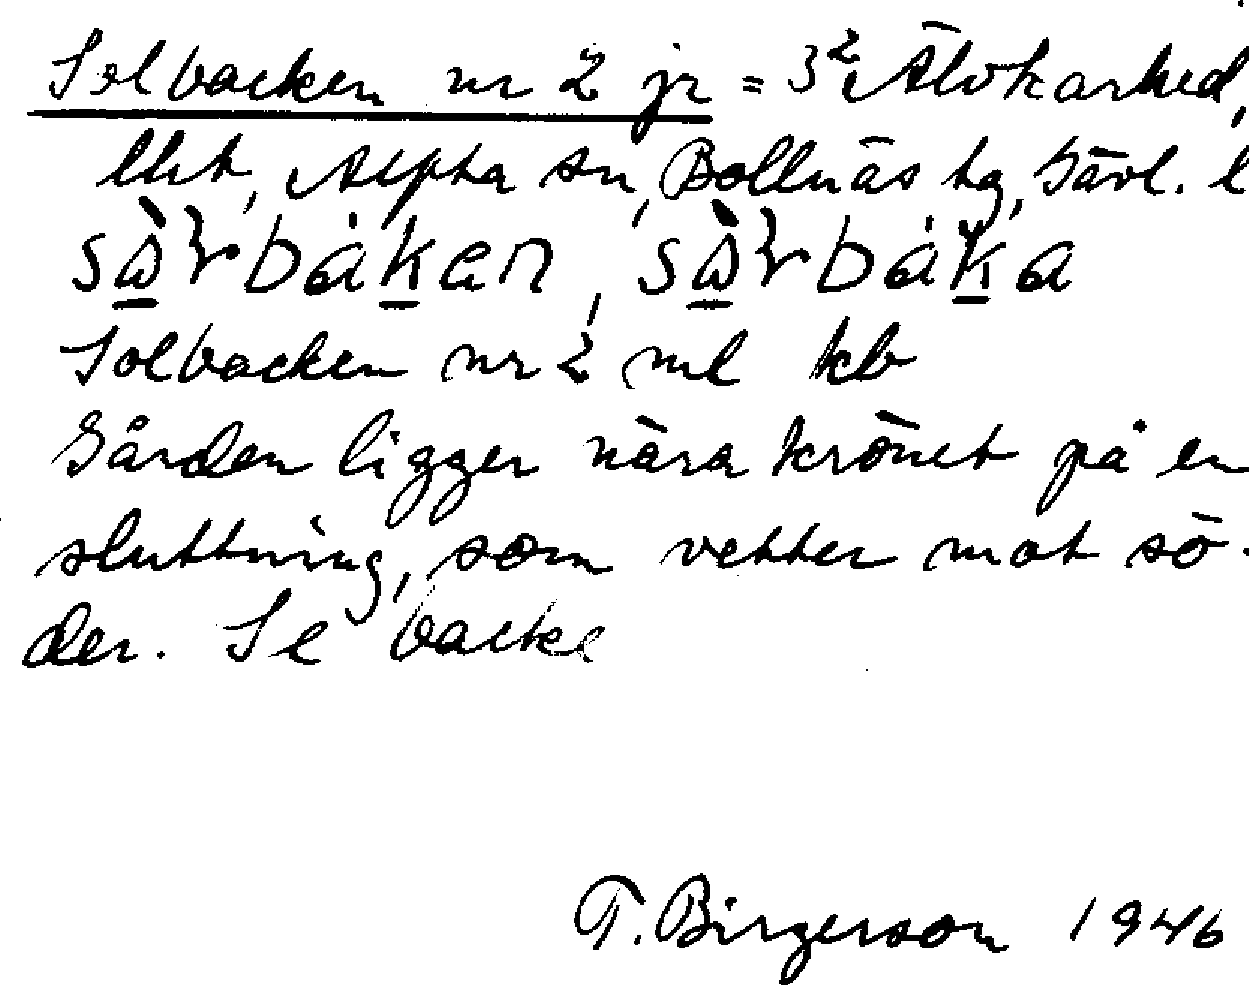 Solbacken nr 2 jr = 3² Älvkarhed,
lht, Alfta sn, Bollnäs tg, Gävl. l
Solbacken nr 2 ml kb
Gården ligger nära krönet på en
sluttning, som vetter mot sö-
der. Se backe
T. Birgerson 1946